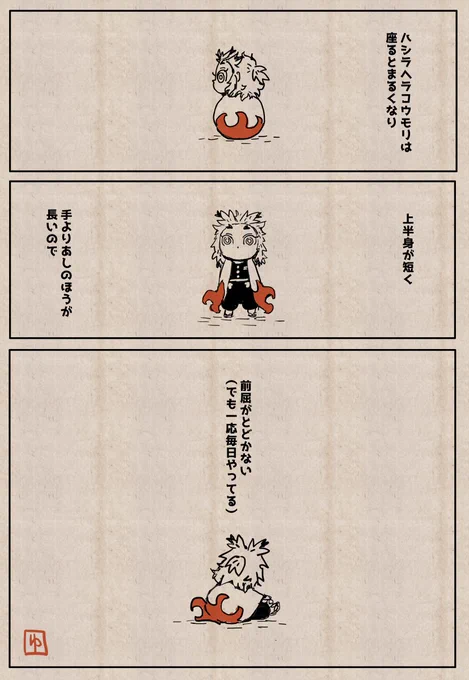 ハシラヘラコウモリは
座るとまるくなり
上半身が短く
手よりあしのほうが
長いので
前屈がとどかない
(でも一応毎日やってる)
ゆ